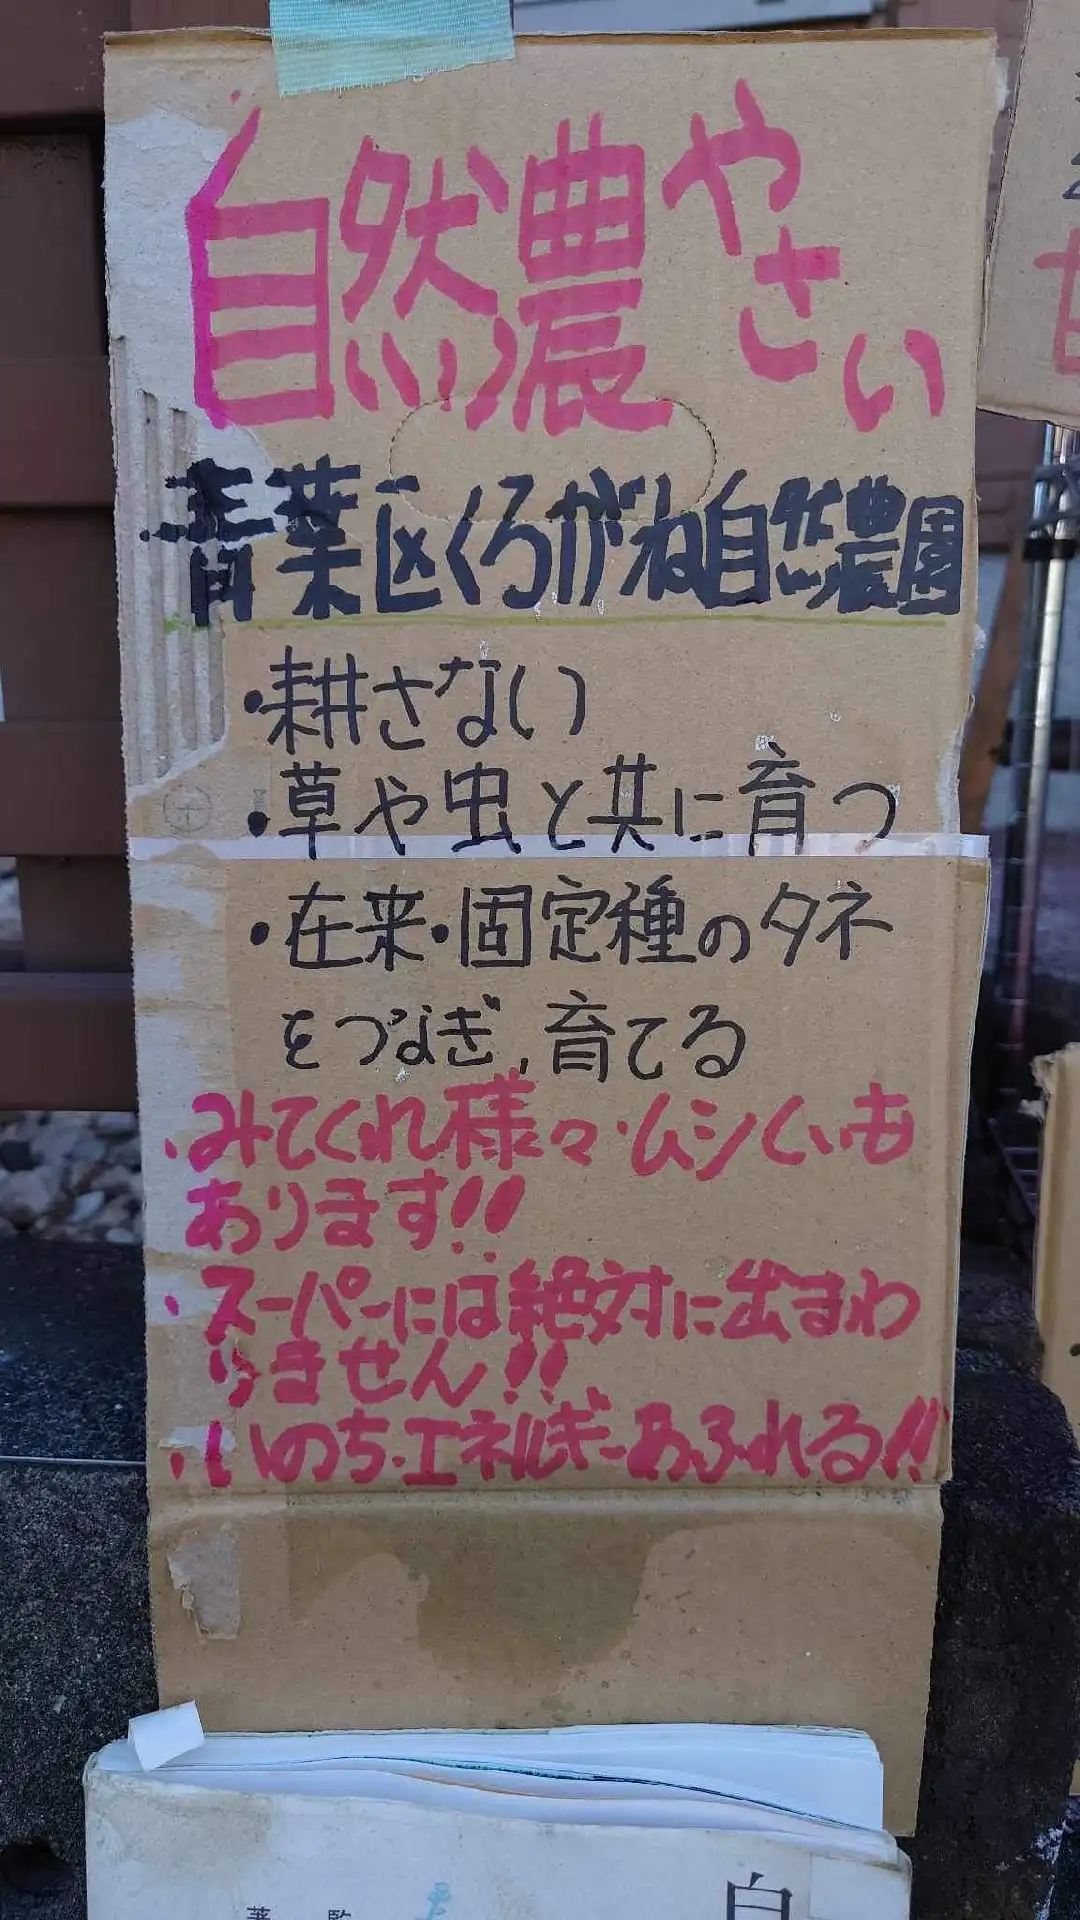 自然農やさい
青葉区くろがね自然農園
・耕さない
・草や虫と共に育つ
・在来・固定種のタネ
をつなぎ、育てる
・みてくれ様々・ムシくいも
あります!!
・スーパーには絶対に出まわ
りません!!
・いのち・エネルギーあふれる!!
自
著 監